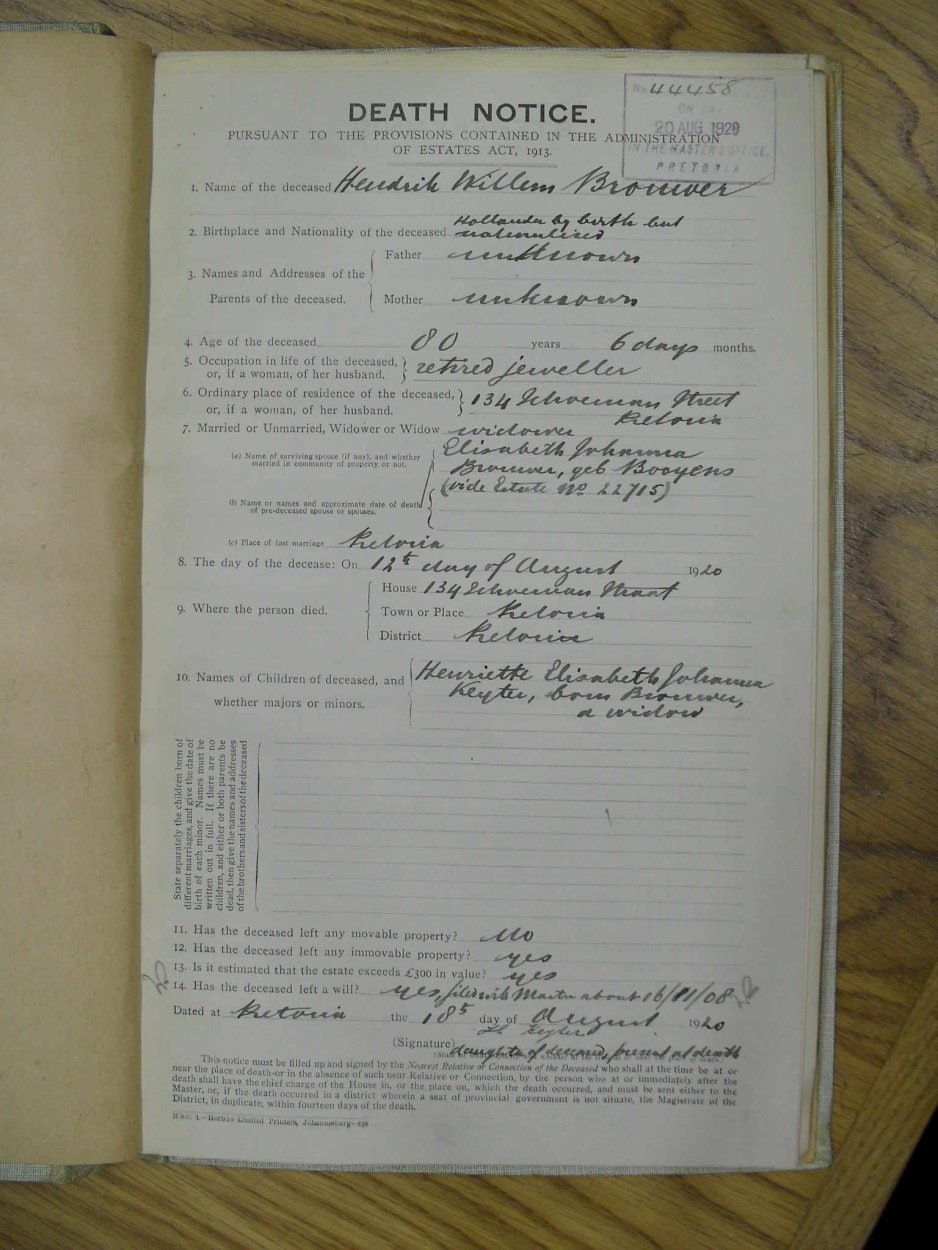 No. 44458
ON THE
20 AUG 1920
IN THE MASTER'S OFFICE,
PRETORIA
DEATH NOTICE.
PURSUANT TO THE PROVISIONS CONTAINED IN THE ADMINISTRATION
OF ESTATES ACT, 1913.
1. Name of the deceased Hendrik Willem Brouwer
2. Birthplace and Nationality of the deceased Hollander by birth but
naturalised
3. Names and Addresses of the
Parents of the deceased.
Father unknown
Mother unknown
4. Age of the deceased 80 years 6 days months.
5. Occupation in life of the deceased,
or, if a woman, of her husband.
retired jeweller
6. Ordinary place of residence of the deceased,
or, if a woman, of her husband.
134 Schoeman Street
Pretoria
7. Married or Unmarried, Widower or Widow widower
(a) Name of surviving spouse (if any), and whether
married in community of property or not.
Elisabeth Johanna
Brouwer, geb Booyens
(vide Estate No 22715)
(b) Name or names and approximate date of death
of pre-deceased spouse or spouses.
(c) Place of last marriage Pretoria
8. The day of the decease: On 12th day of August 1920
9. Where the person died.
House 134 Schoeman Street
Town or Place Pretoria
District Pretoria
10. Names of Children of deceased, and
whether majors or minors.
Henriette Elisabeth Johanna
Keyter, born Brouwer,
a widow
State separately the children born of
different marriages, and give the date of
birth of each minor. Names must be
written out in full. If there are no
children, and either or both parents be
dead, then give the names and addresses
of the brothers and sisters of the deceased
11. Has the deceased left any movable property? No
12. Has the deceased left any immovable property? yes
13. Is it estimated that the estate exceeds £300 in value? yes
14. Has the deceased left a will? yes, filed with Master about 16/11/08
Dated at Pretoria the 18th day of August 1920
(Signature) Keyter
daughter of deceased, present at death
This notice must be filled up and signed by the Nearest Relative or Connection of the Deceased who shall at the time be at or
near the place of death—or in the absence of such near Relative or Connection, by the person who at or immediately after the
death shall have the chief charge of the House in, or the place on, which the death occurred, and must be sent either to the
Master, or, if the death occurred in a district wherein a seat of provincial government is not situate, the Magistrate of the
District, in duplicate, within fourteen days of the death.
M.S.C. 1.—Hortors Limited Printers, Johannesburg—